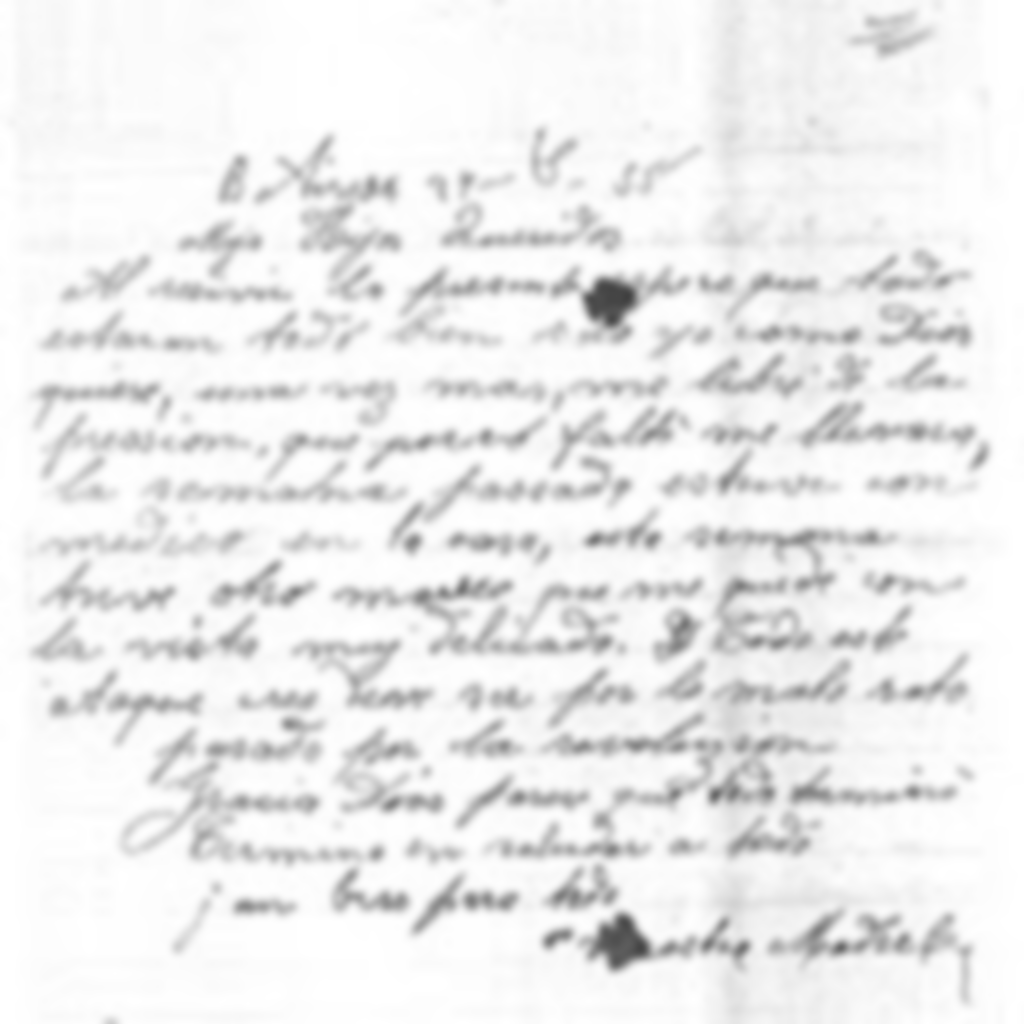 B. Aires 27- 6. 55
Mijo Hijos Queridos
Al recivir la presente espero que todo
estaran todos bien yo como Dios
quiere, una vez mas, me libré de la
pression, que poco falto me llevara,
la semana pasada estuve con
medico en la casa, esta semana
tuve otro que me quede con
la vista muy delicada. Todo este
ataque creo ser por lo malo rato
pasado por la revolucion
Gracia Dios parece que todo termino
Termino en saludar a todo
un beso para todo
Madre